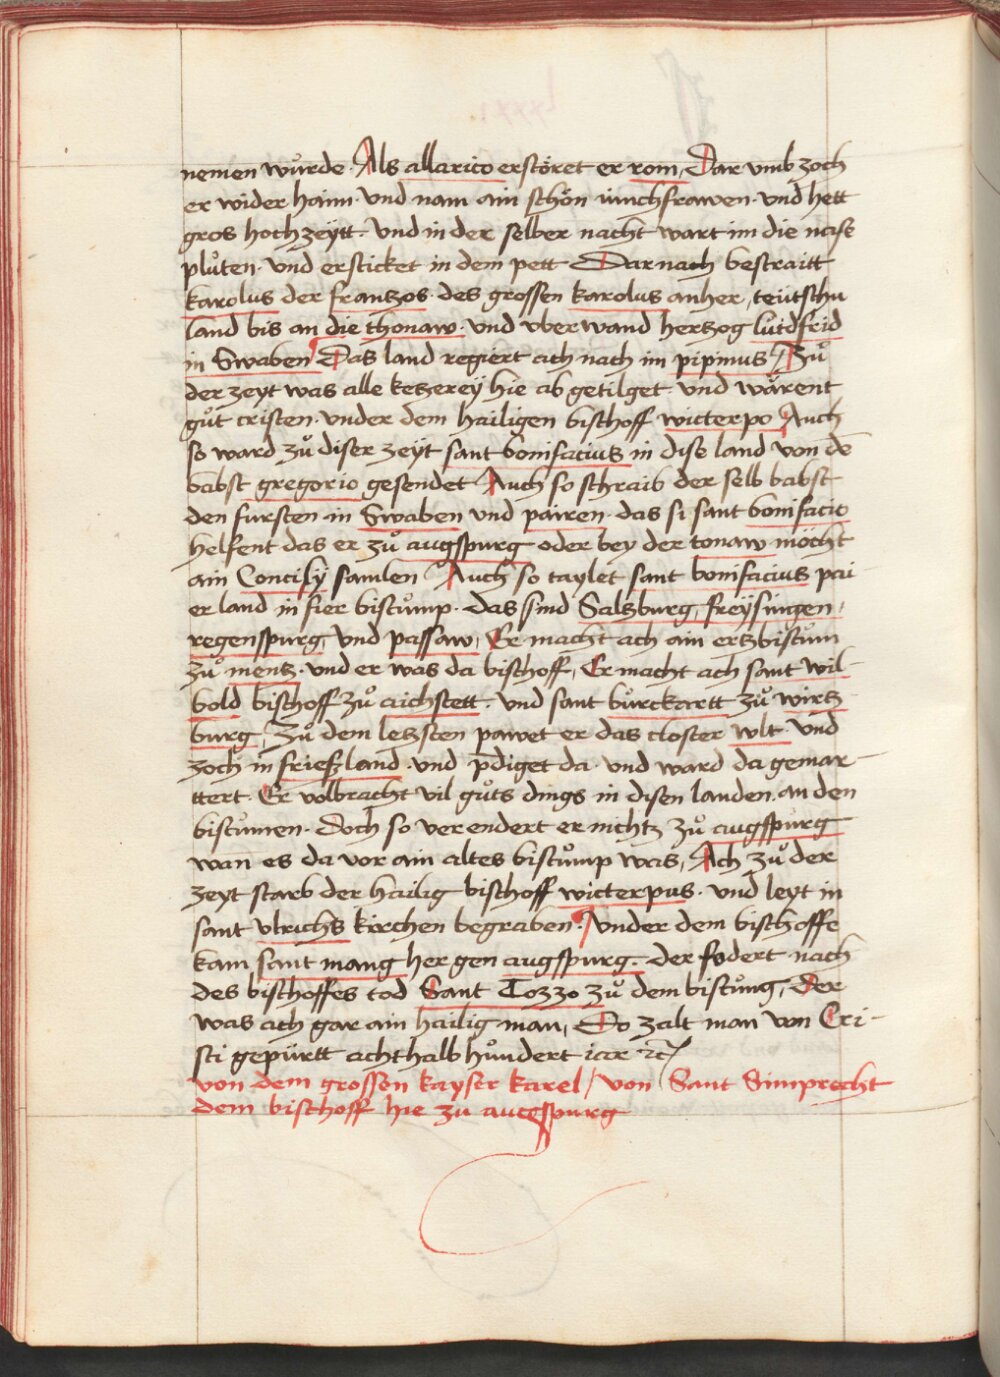 nemen wuͦrde · Als allarico erstöret er rom, Dar vmb zoch
er wider haim · Vnd nam ain schön iunchfrawen · vnd hett
gros hochzeÿtt · Vnd in der selber nacht wart im die nase
pluͦten · vnd ersticket in dem pett Darnach bestraitt
karolus der franszos · des grossen karolus anher, teütschu
land bis an die thonaw · vnd vberwand hertzog luidfrid
in Swaben Das land regiert ach nach im pipinus Zuͦ
der zeyt was alle ketzereÿ hie ab getilget · vnd wärent
guͦt cristen · vnder dem hailigen bischoff wicterpo Auch
so ward zuͦ diser zeÿt sant bonifacius in dise land von dē
babst gregorio gesendet Auch so schraib der selb babst
den fursten in Swaben vnd pairen · das si sant bonifacio
helfent das er zuͦ augspurg oder bey der tonaw möcht
ain Concilÿ samlen Auch so taylet sant bonifacius pai
er land in fier bistuͦmp · das sind Salsburg, freÿsingen,
regenspurg, vnd passaw, Er macht ach ain ertzbistuͦm
zuͦ mentz · vnd er was da bischoff, Er macht ach sant wil-
bold bischoff zuͦ aichstett · vnd sant buͦrckartt zuͦ wirtz
burg, Zuͦ dem letzsten pawet er das closter wlt · Vnd
zoch in frießland · vnd p̄diget da · vnd ward da gemar-
ttert · Er volbracht vil guͦts dings in disen landen · an den
bistuͦmen · Doch so verendert er nichtz zuͦ augspurg
wan es da vor ain altes bistuͦmp was, Ach zuͦ der
zeyt starb der hailig bischoff wicterpus · vnd leyt in
sant vlrichs kirchen begraben · Vnder dem bischoffe
kam sant mang her gen augspurg · der fodert nach
des bischoffes tod Sant Tozzo zuͦ dem bistuͦng, Der
was ach gar ain hailig man, Do zalt man von Cri-
sti gepürtt achthalb huͦndert iar ꝛc
von dem grossen kayser karel / von Sant Simprecht
dem bischoff hie zu augspurg